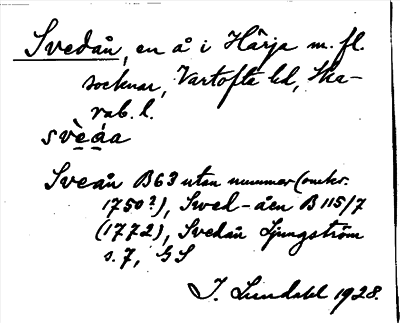 Svedån, en å i Härja m. fl.
socknar, Vartofta hd, Ska-
rab. l.
svèáa
Sveån B63 utan nummer (omkr.
1750?), Swed-åen B 115/7
(1772), Svedån Ljungström
s. 7, GS
I. Lundahl 1928.